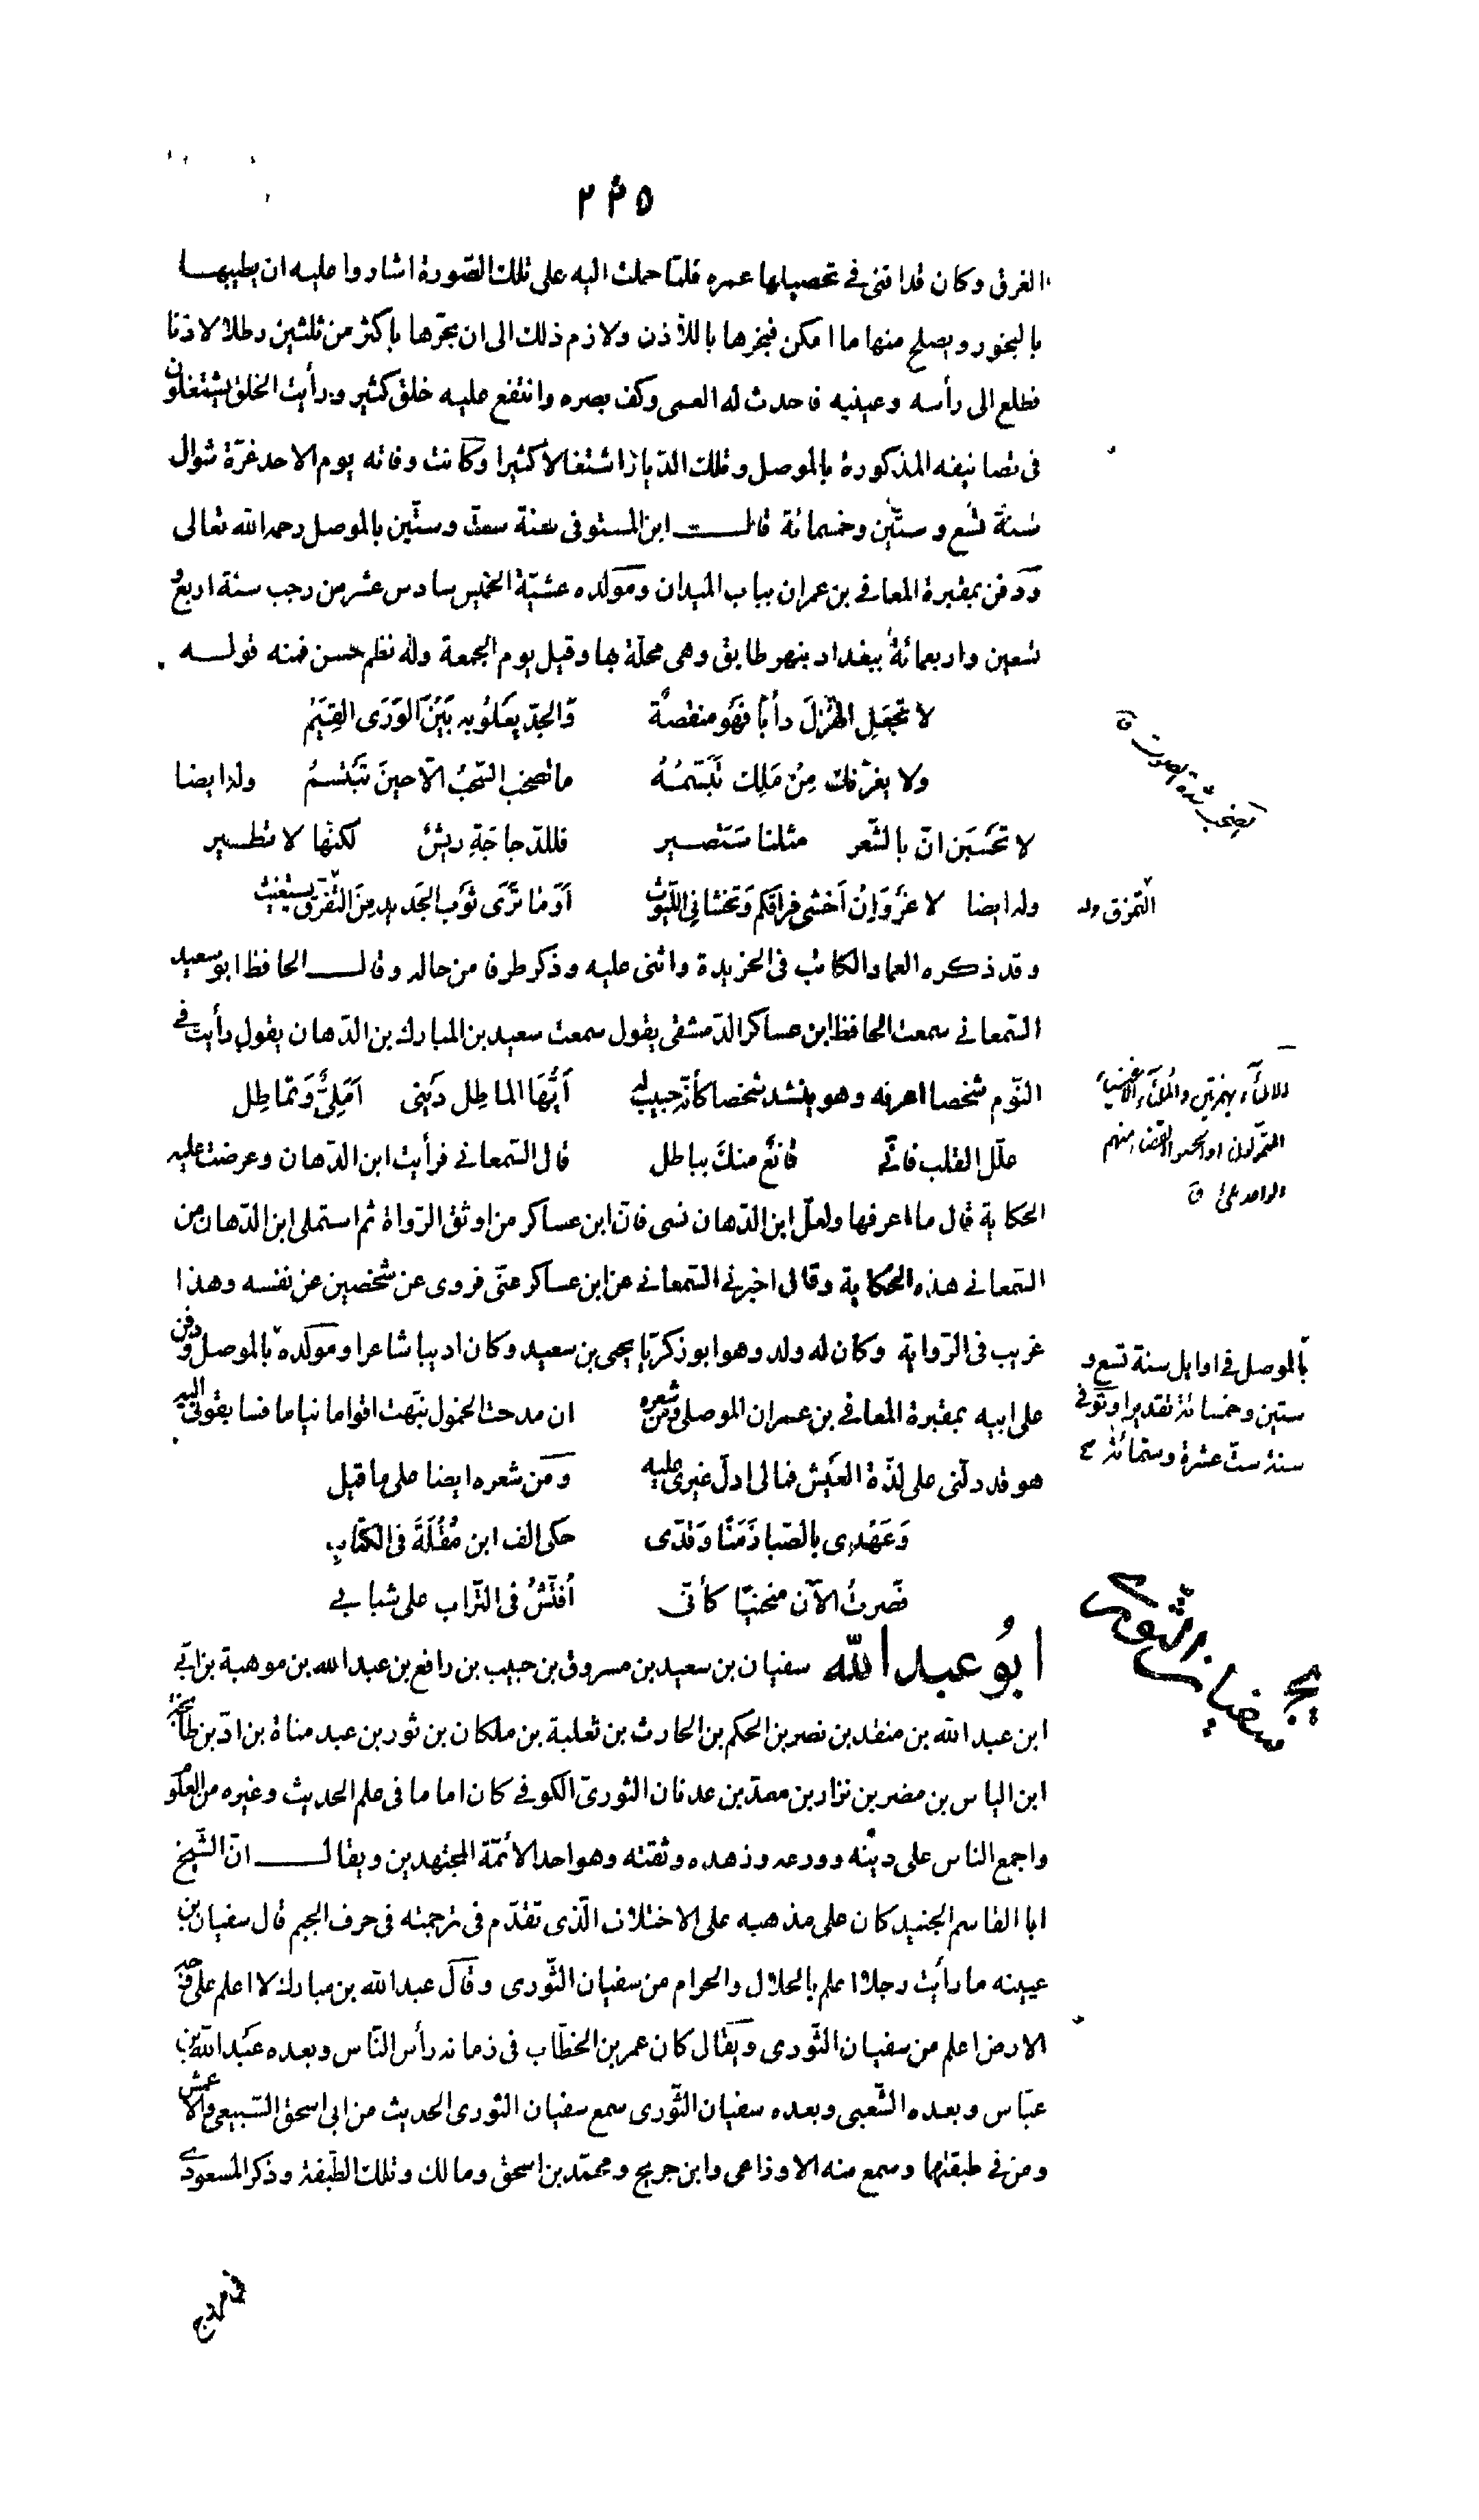 ٢٣٥
الغرق وكان قد افنى فى تحصيلها عمره فلمّا حملت اليه على تلك الصّورة اشاروا عليه ان يطيبها
بالبخور ويصلح منها ما امكن فبخرها باللّاذن ولازم ذلك الى ان بخّرها باكثر من ثلثين رطلا لاذنا
فطلع الى رأسه وعينيه فاحدث له العمى وكف بصره وانتفع عليه خلق كثير ورأيت الخلق يشتغلون
فى تصانيفه المذكورة بالموصل وتلك الدّيار اشتغالا كثيرا وكانت وفاته يوم الاحد غرّة شوال
سنة تسع وستّين وخمسمائة قال ابن المستوفى سنة ست وستّين بالموصل رحمه الله تعالى
ودفن بمقبرة المعافى بن عمران بباب الميدان ومولده عشيّة الخميس سادس عشر من رجب سنة اربع و
تسعين واربعمائة ببغداد بنهر طابق وهى محلّة بها وقيل يوم الجمعة وله نظم حسن فمنه قوله
لا تجعل الهزل دأبا فهو منقصة والجدّ يعلو به بين الورى القيم
ولا يغرّنك من ملك تبسّمه ما تصخب السّحب الّا حين تبتسم وله ايضا
لا تحسبن انّ بالشّعر مثلنا ستصير فللدّجاجة ريش لكنّها لا تطير
وله ايضا لا غرو ان اخشى فراقكم وتخشانى اللّيوث اوما ترى ثوب الجديد من التّفرّق يستغيث
وقد ذكره العماد الكاتب فى الخريدة واثنى عليه وذكر طرفا من حاله وقال الحافظ ابو سعيد
السّمعانى سمعت الحافظ ابن عساكر الدّمشقى يقول سمعت سعيد بن المبارك بن الدّهان يقول رأيت فى
النّوم شخصا اعرفه وهو ينشد شخصا كأنّه حبيب له ايّها الماطل دينى املىّ وتماطل
علّل القلب فانّى قانع منك بباطل قال السّمعانى فرأيت ابن الدّهان وعرضت عليه
الحكاية قال ما اعرفها ولعلّ ابن الدّهان نسى فانّ ابن عساكر من اوثق الرّواة ثم استملى ابن الدّهان من
السّمعانى هذه الحكاية وقال اخبرنى السّمعانى عن ابن عساكر عنّى فروى عن شخصين عن نفسه وهذا
غريب فى الرّواية وكان له ولد وهو ابو زكريّا يحيى بن سعيد وكان اديبا شاعرا ومولده بالموصل ودفن
على ابيه بمقبرة المعافى بن عمران الموصلى ومن شعره ان مدحت الخمول نبّهت اقواما نياما فسابقونى اليه
هو قد دلّنى على لذّة العيش فمالى ادلّ غيرى عليه ومن شعره ايضا على ما قيل
وعهدى بالصّبا زمنا وقدّى حكى الف ابن مقلة فى الكتاب
فصرت الآن منحنيا كأنّى افتّش فى التّراب على شبابى
ابو عبد الله سفيان بن سعيد بن مسروق بن حبيب بن رافع بن عبد الله بن موهبة بن ابى
ابن عبد الله بن منقذ بن نصر بن الحكم بن الحارث بن ثعلبة بن ملكان بن ثور بن عبد مناة بن ادّ بن طابخة
ابن الياس بن مضر بن نزار بن معدّ بن عدنان الثورىّ الكوفى كان اماما فى علم الحديث وغيره من العلوم
واجمع الناس على دينه وورعه وزهده وثقته وهو احد الأئمّة المجتهدين ويقال انّ الشّيخ
ابا القاسم الجنيد كان على مذهبه على الاختلاف الّذى تقدّم فى ترجمته فى حرف الجيم قال سفيان بن
عيينه ما رأيت رجلا اعلم بالحلال والحرام من سفيان الثّورى وقال عبد الله بن مبارك لا اعلم على وجه
الارض اعلم من سفيان الثّورى ويقال كان عمر بن الخطّاب فى زمانه رأس النّاس وبعده عبد الله بن
عبّاس وبعده الشّعبى وبعده سفيان الثّورى سمع سفيان الثورى الحديث من ابى اسحق السّبيعى والاعمش
ومن فى طبقتهما وسمع منه الاوزاعى وابن جريج ومحمّد بن اسحق ومالك وتلك الطّبقة وذكر المسعودى
التمزق وله
بالموصل فى اوايل سنة تسع و
ستين وخمسمائة تقديرا وتوفى
سنة ستّ عشرة وستمائة
سفيان الثورى